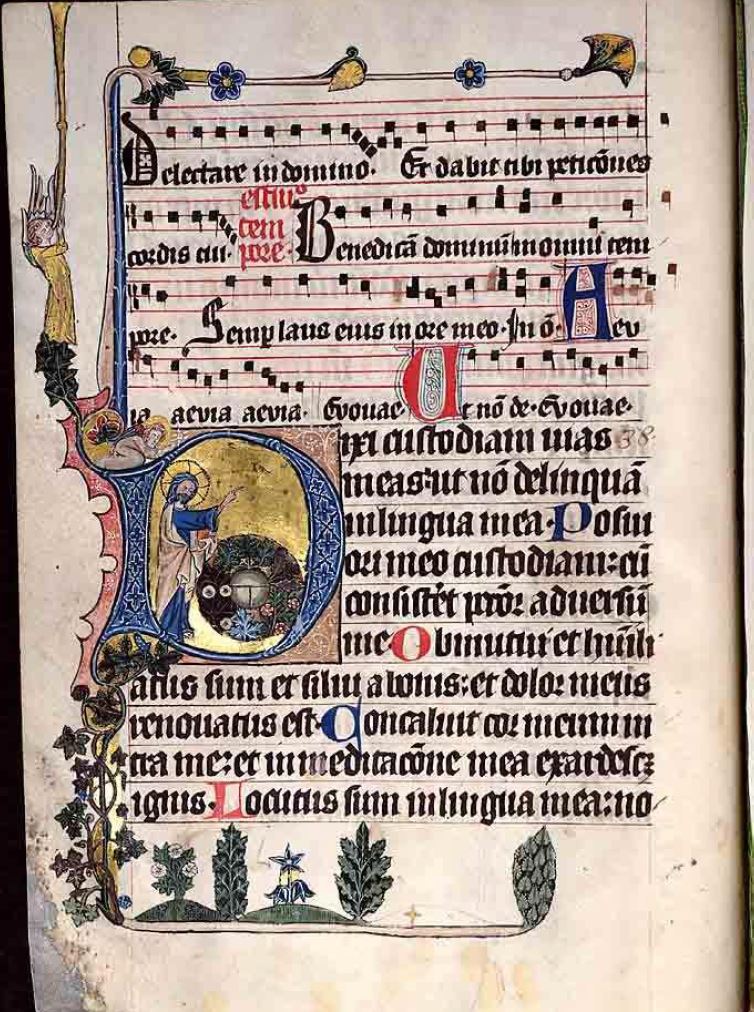 Delectare in domino. Et dabit tibi peticōnes
cordis tui. estiuo
tem
pore. Benedicā dominū in omni tem
pore. Semꝑ laus eius in ore meo. In ō. Aeu
ia aeuia aeuia. Euouae. Ut nō de. Euouae.
Dixi custodiam uias 38
meas: ut nō delinquā
in lingua mea. Posui
ori meo custodiam: cū
consistēt aduersū
me. Obmutui et humili
atus sum et silui a bonis: et dolor meus
renouatus est. Concaluit cor meum in
tra me: et in meditacōne mea exardescꝫ
ignis. Locutus sum in lingua mea: no